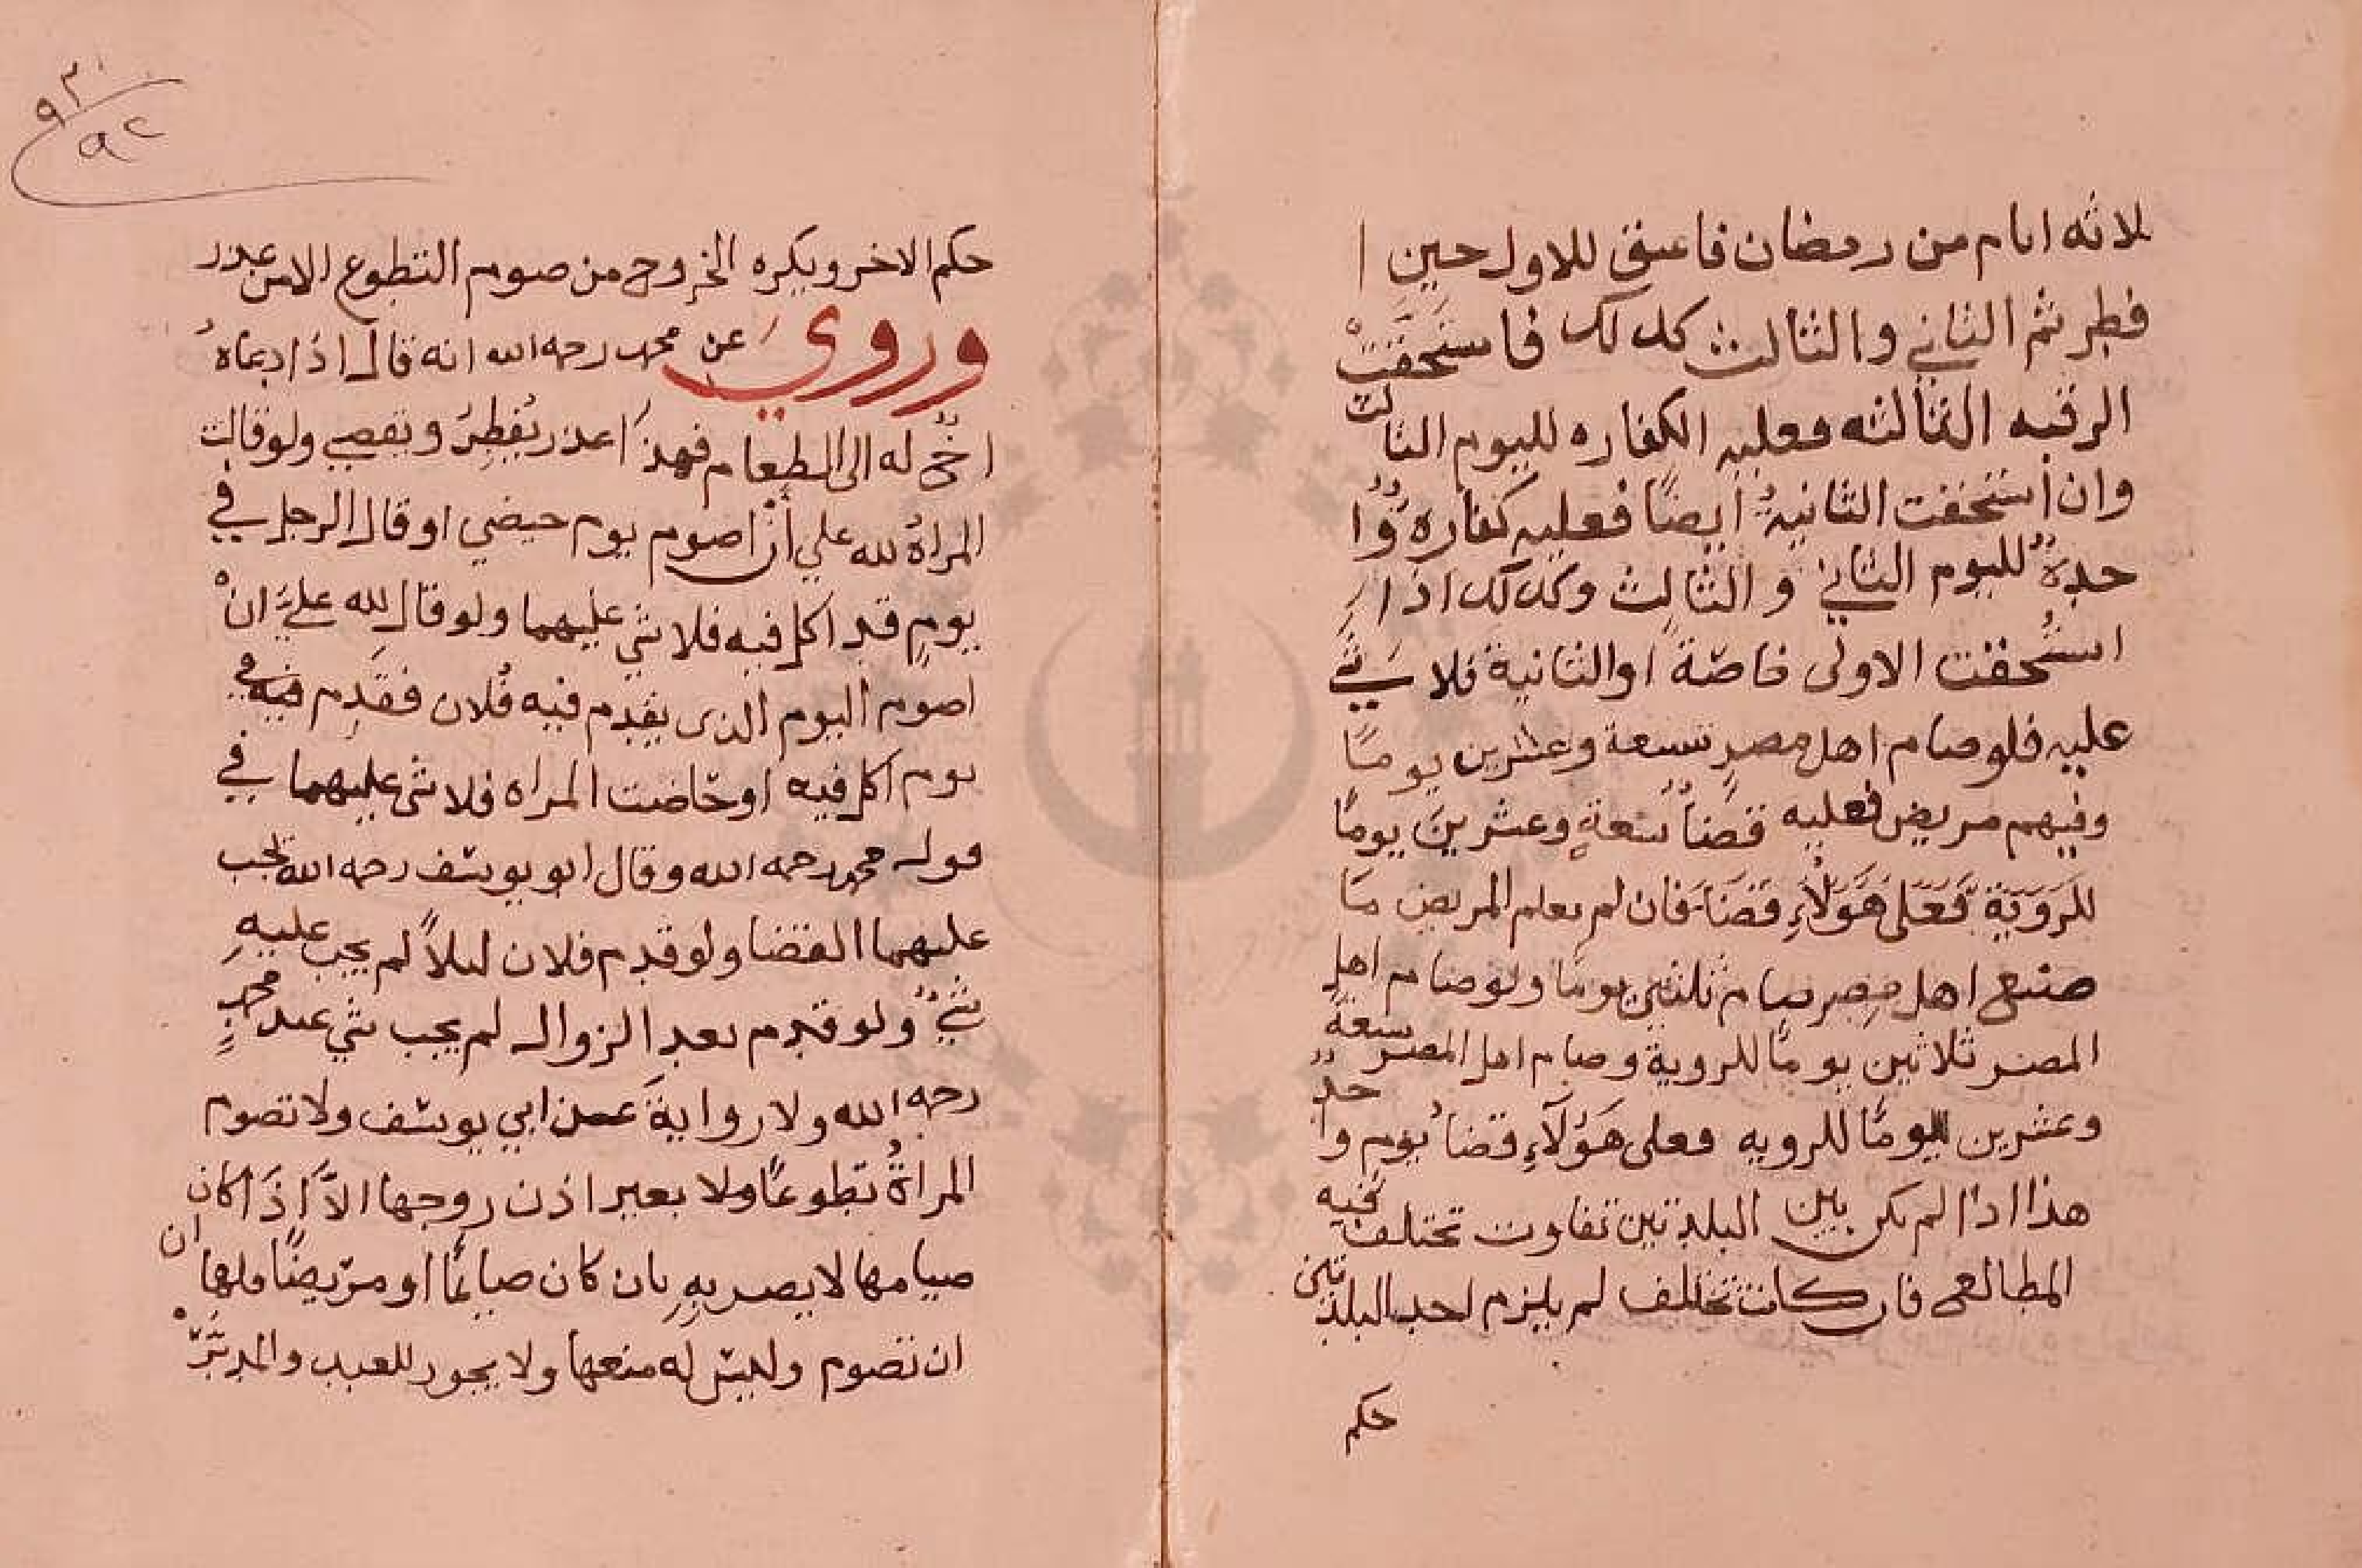 ثلاثه ايام من رمضان فاعتق للاول حين ا
فطر ثم الثاني والثالث كذلك فاستحقت
الرقبه الثالثه فعليه الكفاره لليوم الثالث
وان استحقت الثانية ايضًا فعليه كفارة وا
حدة لليوم الثاني والثالث وكذلك اذا
استحقت الاولى خاصّة او الثانية فلا شي
عليه فلو صام اهل مصرٍ تسعة وعشرين يومًا
وفيهم مريض فعليه قضاُ تسعةٍ وعشرين يومًا
للرَوية فعلى هَوَلآءِ قضَا فان لم يعلم المريض مَا
صنع اهل مصر صام ثلثين يومًا ولو صام اهل
المصر ثلاثين يومًا للروية وصام اهل المصر تسعة
وعشرين يومًا للرويه فعلى هَوُلآءِ قضاُ يوم واحد
هذا اذا لم يكن بين البلدتين تفاوت تختلف فيه
المطالع فان كانت تختلف لم يلزم احد البلدتين
حكم
٩٣
٩٢
حكم الاخر ويكره الخروج من صوم التطوع الا من عذر
وروي عن محمد رحمه الله انه قال اذا دعاهُ
اخٌ له الى الطعام فهذا عذر يُفطِرُ ويقضي ولو قالت
المراةُ لله علي أنْ اصوم يوم حيضي او قال الرجل في
يومٍ قد اكل فيه فلا شي عليهما ولو قال لِله عليَّ انْ
اصوم اليوم الذي يقدم فيه فُلان فقدِم فيه في
يوم اكل فيه او حَاضت المراه فلا شي عليهما في
قول محمد رحمه الله وقال ابو يوسف رحمه الله يجب
عليهما القضا ولو قدم فلان ليلاً لم يجب عليهِ
شيٌ ولو قدم بعد الزوال لم يجب شي عند محمدٍ
رحمه الله ولا رواية عن ابي يوسف ولا تصوم
المراةُ تطوعًا ولا بغير اذن زوجها الاَّ اذا كان
صيامها لا يضر بهِ بان كان صايمًا او مريضًا فلها ان
ان تصوم وليس له منعها ولا يجوز للعبد والمدبَّرْ